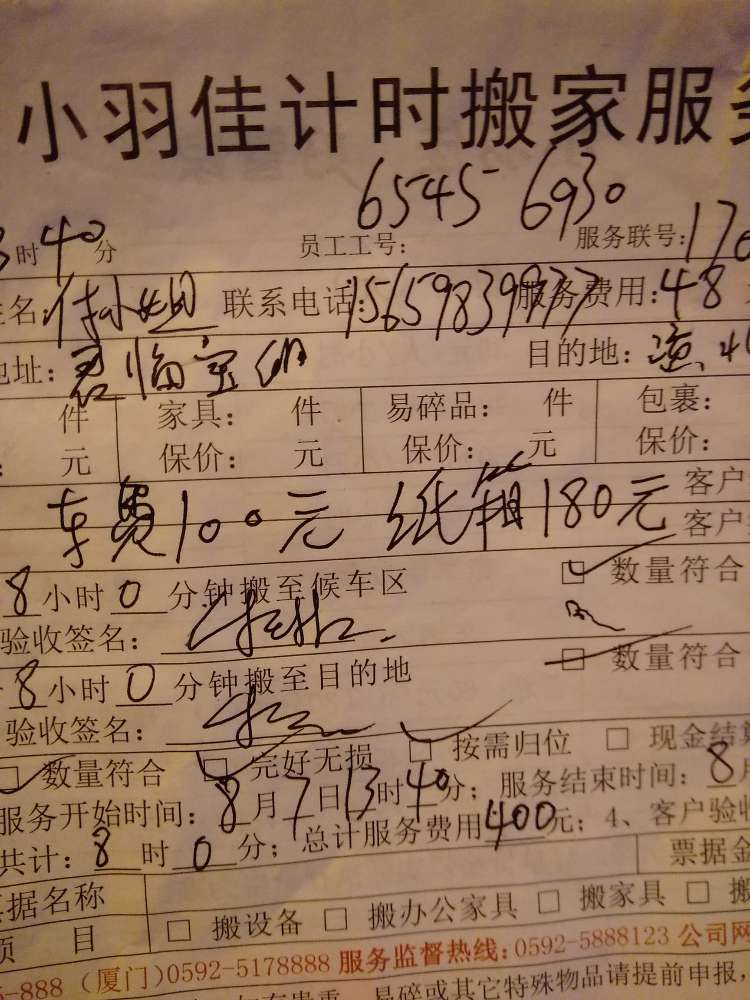 小羽佳计时搬家服务
6545 6930
时40分 员工工号: 服务联号:170
姓名: 小姐 联系电话:15659839977 服务费用:48
地址:君临宝 目的地:
件 家具: 件 易碎品: 件 包裹:
元 保价: 元 保价: 元 保价:
车费100元 纸箱180元 客户
客户
8小时0分钟搬至候车区 数量符合
验收签名:
8小时0分钟搬至目的地 数量符合
验收签名:
数量符合 完好无损 按需归位 现金结算
服务开始时间:8月7日13时40分;服务结束时间:8月
共计:8时0分;总计服务费用400元;4、客户验收
票据金
票据名称
项目 搬设备 搬办公家具 搬家具 搬
5-888 (厦门)0592-5178888 服务监督热线:0592-5888123 公司网
易碎或其它特殊物品请提前申报,